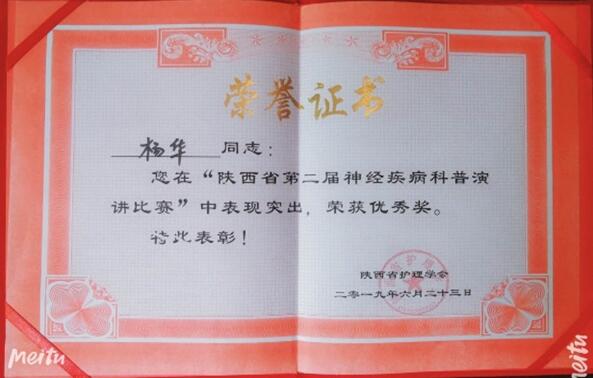 荣誉证书
杨华 同志：
您在“陕西省第二届神经疾病科普演
讲比赛”中表现突出，荣获优秀奖。
特此表彰！
陕西省护理学会
二零一九年六月二十三日
Meitu
Meitu